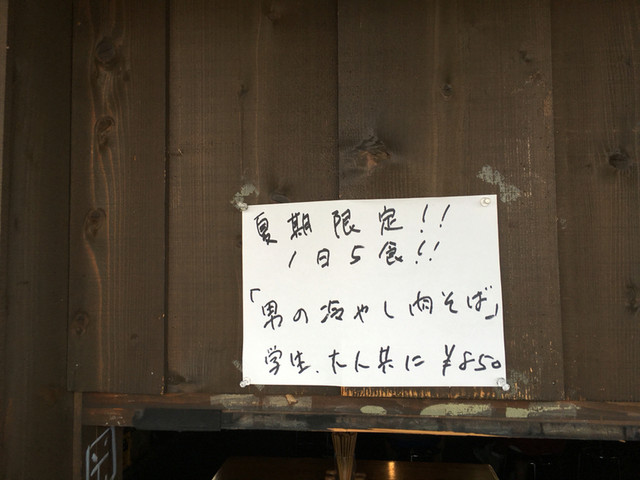 夏期限定!!
1日5食!!
「男の冷やし肉そば」
学生、大人共に ¥850